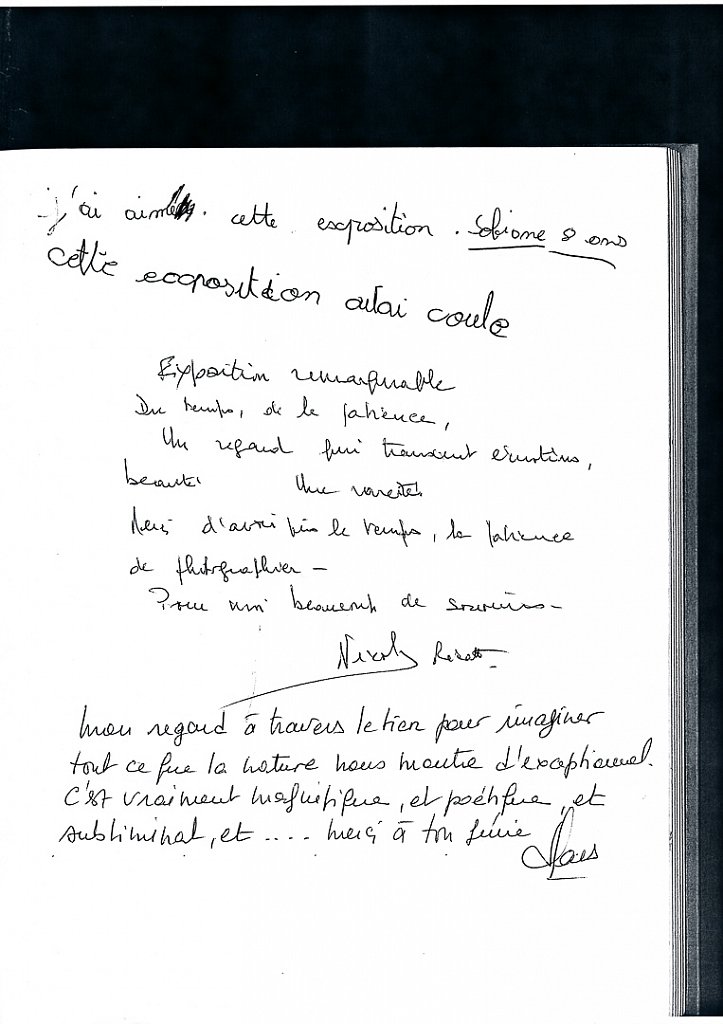 j'ai aimé cette exposition. Sobiane 8 ans
cette ecoposition atai coule
Exposition remarquable
Du temps, de la patience,
Un regard qui transmet émotions,
beauté Une rareté
Merci d'avoir pris le temps, la patience
de photographier –
Pour moi beaucoup de souvenirs –
Nicol
mon regard à travers le tien pour imaginer
tout ce que la nature nous montre d'exceptionnel.
C'est vraiment magnifique, et poétique, et
subliminal, et .... merci à ton génie